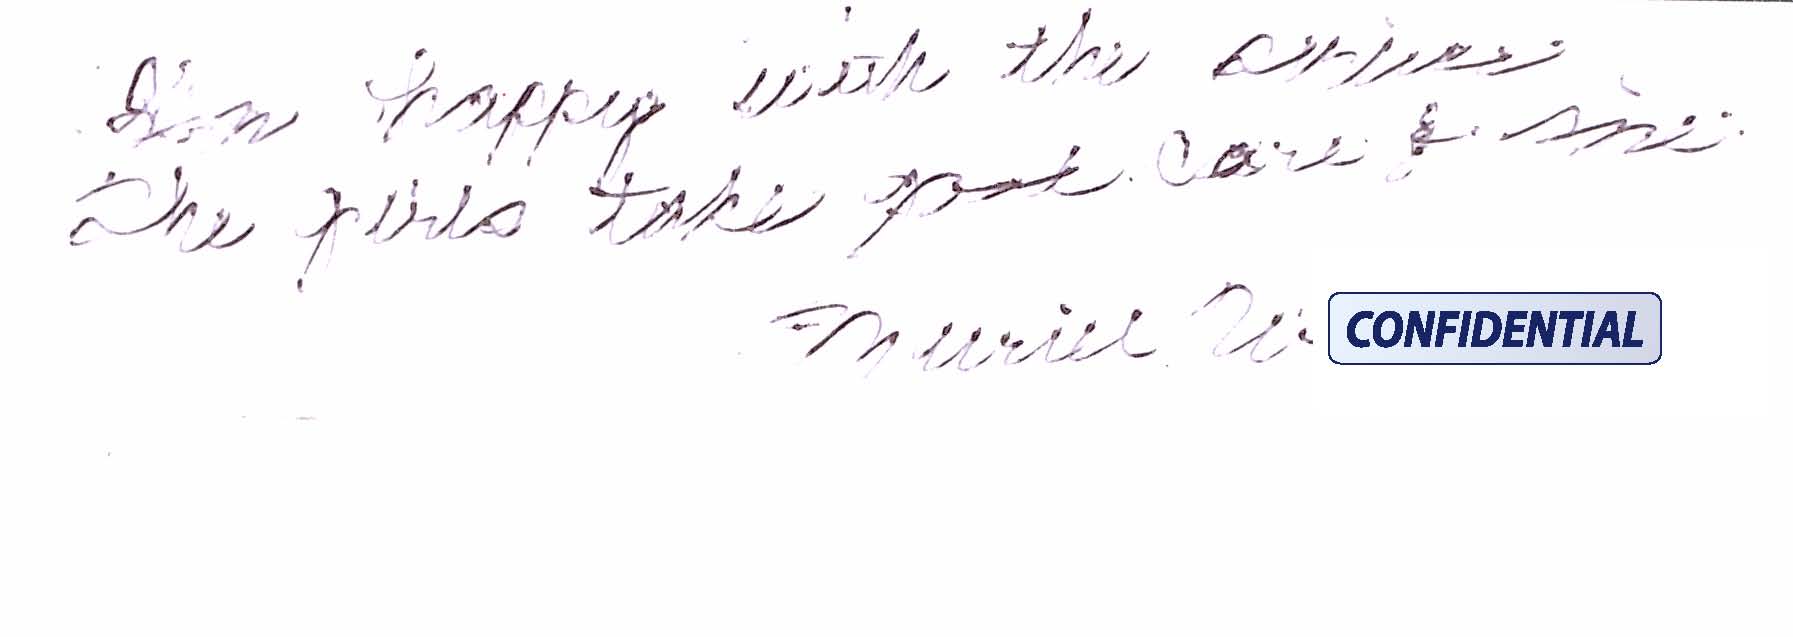 I'm happy with the
The girls take good care of me.
Muriel W
CONFIDENTIAL